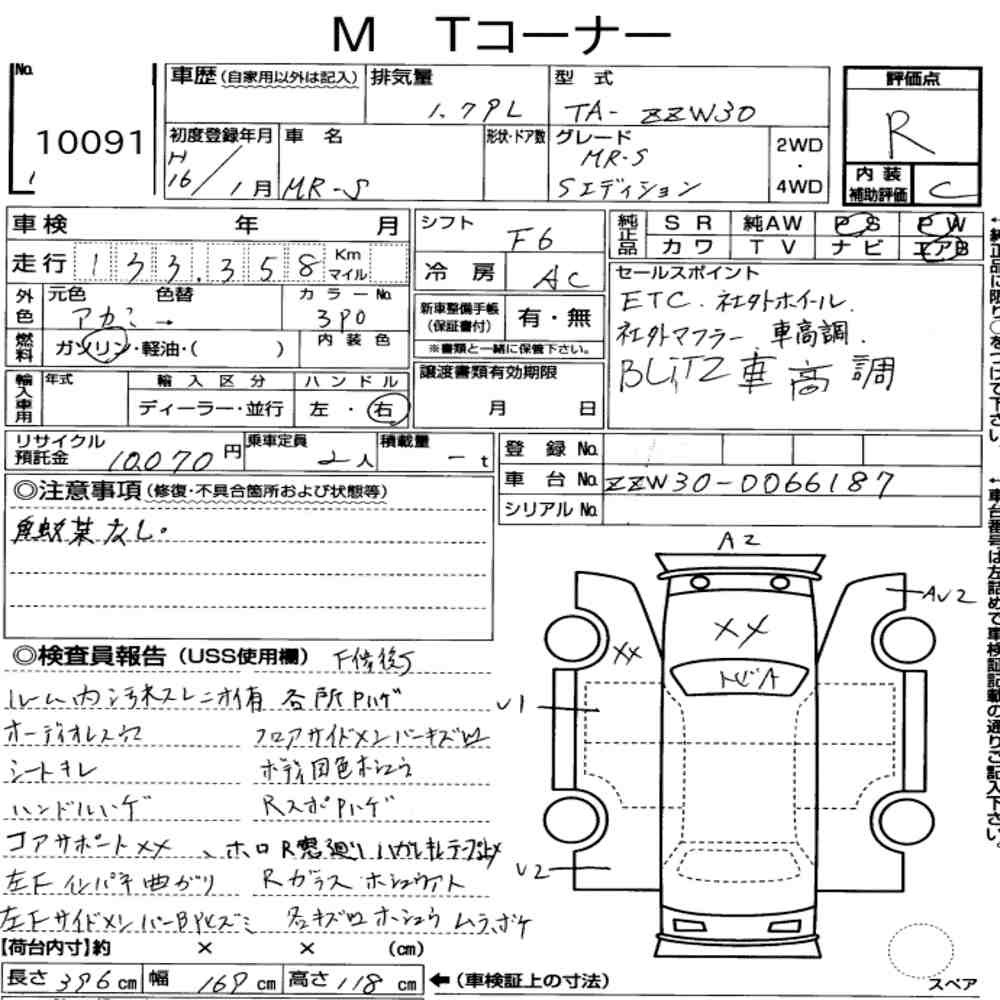 M Tコーナー
No.
10091
車歴(自家用以外は記入)
排気量
1.79L
型式
TA-ZZW30
初度登録年月
H16/1月
車名
MR-S
形状・ドア数
グレード
MR-S
Sエディション
2WD
・
4WD
評価点
R
内装
補助評価
C
車検 年 月
走行 133,358 Km
マイル
シフト
F6
冷房
AC
純正品
SR 純AW PS PW
カワ TV ナビ エアB
外色
元色 色替 カラーNo.
アカミ→ 3P0
燃料
ガソリン・軽油・( )
内装色
新車整備手帳
(保証書付)
有・無
※書類と一緒に保管下さい。
セールスポイント
ETC.社外ホイール.
社外マフラー 車高調.
BLiTZ車高調
輸入車用
年式
輸入区分
ディーラー・並行
ハンドル
左・右
譲渡書類有効期限
月 日
リサイクル
預託金
10,070円
乗車定員
2人
積載量
-t
登録No.
車台No.
ZZW30-0066187
シリアルNo.
◎注意事項(修復・不具合箇所および状態等)
なし.
◎検査員報告(USS使用欄)
ルーム内汚れスレニオイ有 各所Pハゲ
オーディオレス穴
フロアサイドメンバーキズ凹
シートキレ
ハンドルハゲ
RスポPハゲ
コアサポートXX
左Fインパネ曲がり
左Fサイドメンバー
A2
AU2
XX
XX
トビA
U1
U2
【荷台内寸】約 × × (cm)
長さ396cm 幅169cm 高さ118cm
←(車検証上の寸法)
スペア
←純正品に限り○をつけて下さい。
←車台番号は左詰めで車検証記載の通りご記入下さい。